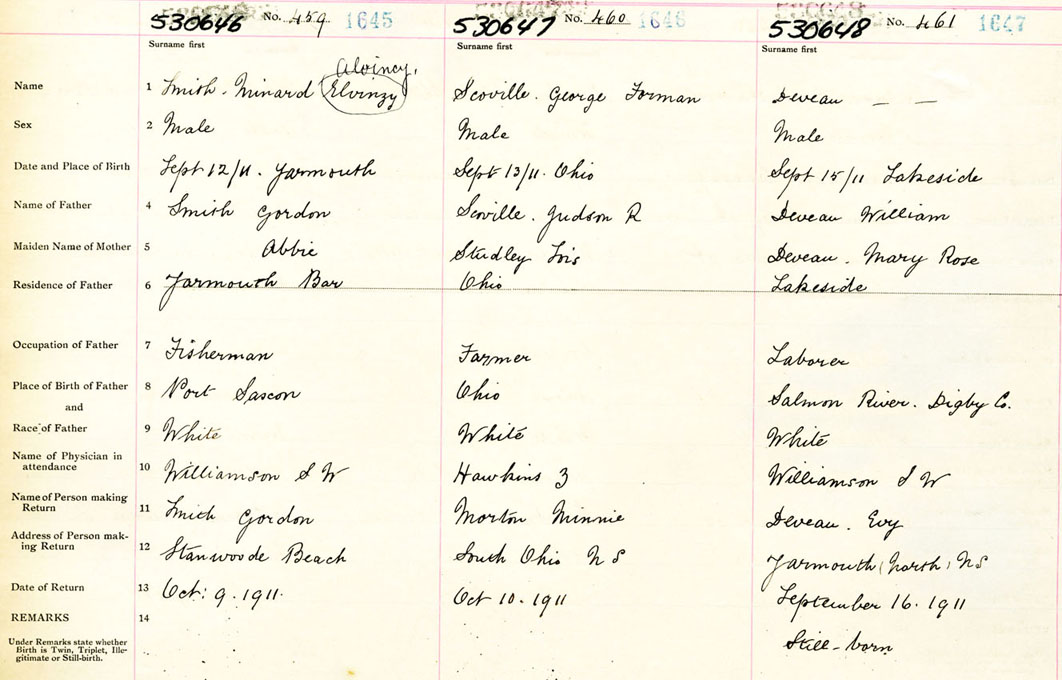 530646 No. 459 1645 530647 No. 460 1646 530648 No. 461 1647
Surname first Surname first Surname first
Alvincy.
Name 1 Smith - Minard Elvinzy Scoville. George Forman Deveau — —
Sex 2 Male Male Male
Date and Place of Birth Sept 12/11. Yarmouth Sept 13/11. Ohio Sept 15/11 Lakeside
Name of Father 4 Smith Gordon Scoville. Judson R Deveau William
Maiden Name of Mother 5 Abbie Studley Lois Deveau. Mary Rose
Residence of Father 6 Yarmouth Bar Ohio Lakeside
Occupation of Father 7 Fisherman Farmer Laborer
Place of Birth of Father 8 Port Sascon Ohio Salmon River. Digby Co.
and
Race of Father 9 White White White
Name of Physician in
attendance 10 Williamson S W Hawkins Z Williamson S W
Name of Person making
Return 11 Smith Gordon Morton Minnie Deveau. Evy
Address of Person mak-
ing Return 12 Stanwoode Beach South Ohio N S Yarmouth (North) NS
Date of Return 13 Oct: 9. 1911. Oct 10. 1911 September 16. 1911
REMARKS 14
Under Remarks state whether
Birth is Twin, Triplet, Ille-
gitimate or Still-birth. Still-born